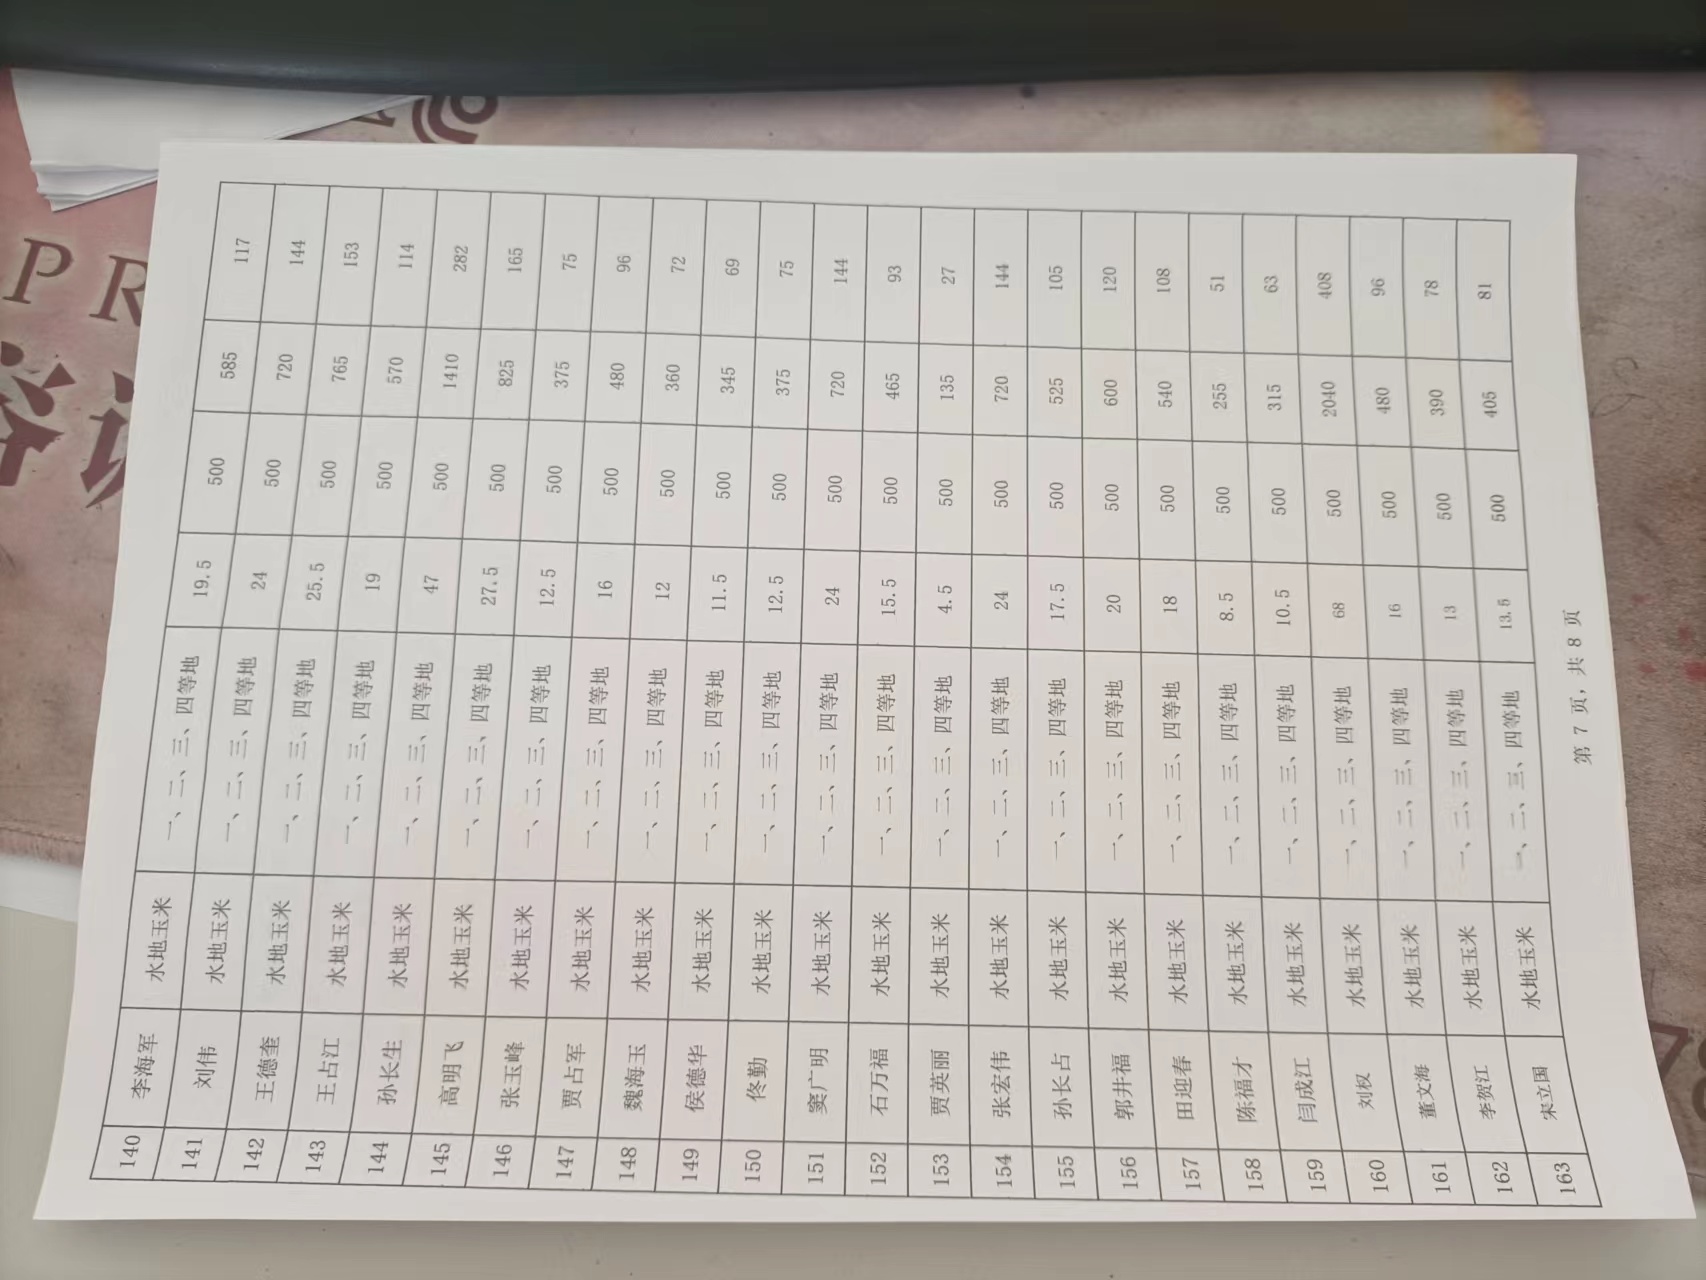 140 李海军 水地玉米 一、二、三、四等地 19.5 500 585 117
141 刘伟 水地玉米 一、二、三、四等地 24 500 720 144
142 王德奎 水地玉米 一、二、三、四等地 25.5 500 765 153
143 王占江 水地玉米 一、二、三、四等地 19 500 570 114
144 孙长生 水地玉米 一、二、三、四等地 47 500 1410 282
145 高明飞 水地玉米 一、二、三、四等地 27.5 500 825 165
146 张玉峰 水地玉米 一、二、三、四等地 12.5 500 375 75
147 贾占军 水地玉米 一、二、三、四等地 16 500 480 96
148 魏海玉 水地玉米 一、二、三、四等地 12 500 360 72
149 侯德华 水地玉米 一、二、三、四等地 11.5 500 345 69
150 佟勤 水地玉米 一、二、三、四等地 12.5 500 375 75
151 窦广明 水地玉米 一、二、三、四等地 24 500 720 144
152 石万福 水地玉米 一、二、三、四等地 15.5 500 465 93
153 贾英丽 水地玉米 一、二、三、四等地 4.5 500 135 27
154 张宏伟 水地玉米 一、二、三、四等地 24 500 720 144
155 孙长占 水地玉米 一、二、三、四等地 17.5 500 525 105
156 郭井福 水地玉米 一、二、三、四等地 20 500 600 120
157 田迎春 水地玉米 一、二、三、四等地 18 500 540 108
158 陈福才 水地玉米 一、二、三、四等地 8.5 500 255 51
159 闫成江 水地玉米 一、二、三、四等地 10.5 500 315 63
160 刘权 水地玉米 一、二、三、四等地 68 500 2040 408
161 董文海 水地玉米 一、二、三、四等地 16 500 480 96
162 李贺江 水地玉米 一、二、三、四等地 13 500 390 78
163 宋立国 水地玉米 一、二、三、四等地 13.5 500 405 81
第 7 页，共 8 页
PR